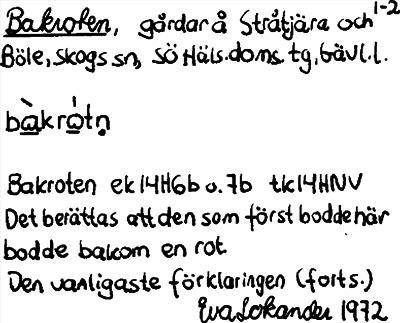 Bakroten, gårdar å Stråtjära och 1-2
Böle, skogs sn, Sö Häls. doms. tg, Gävl. l.
bàkrótn̥
Bakroten ek 14H6b o. 7b tk 14HNV
Det berättas att den som först bodde här
bodde bakom en rot.
Den vanligaste förklaringen (forts.)
Eva Lokander 1972